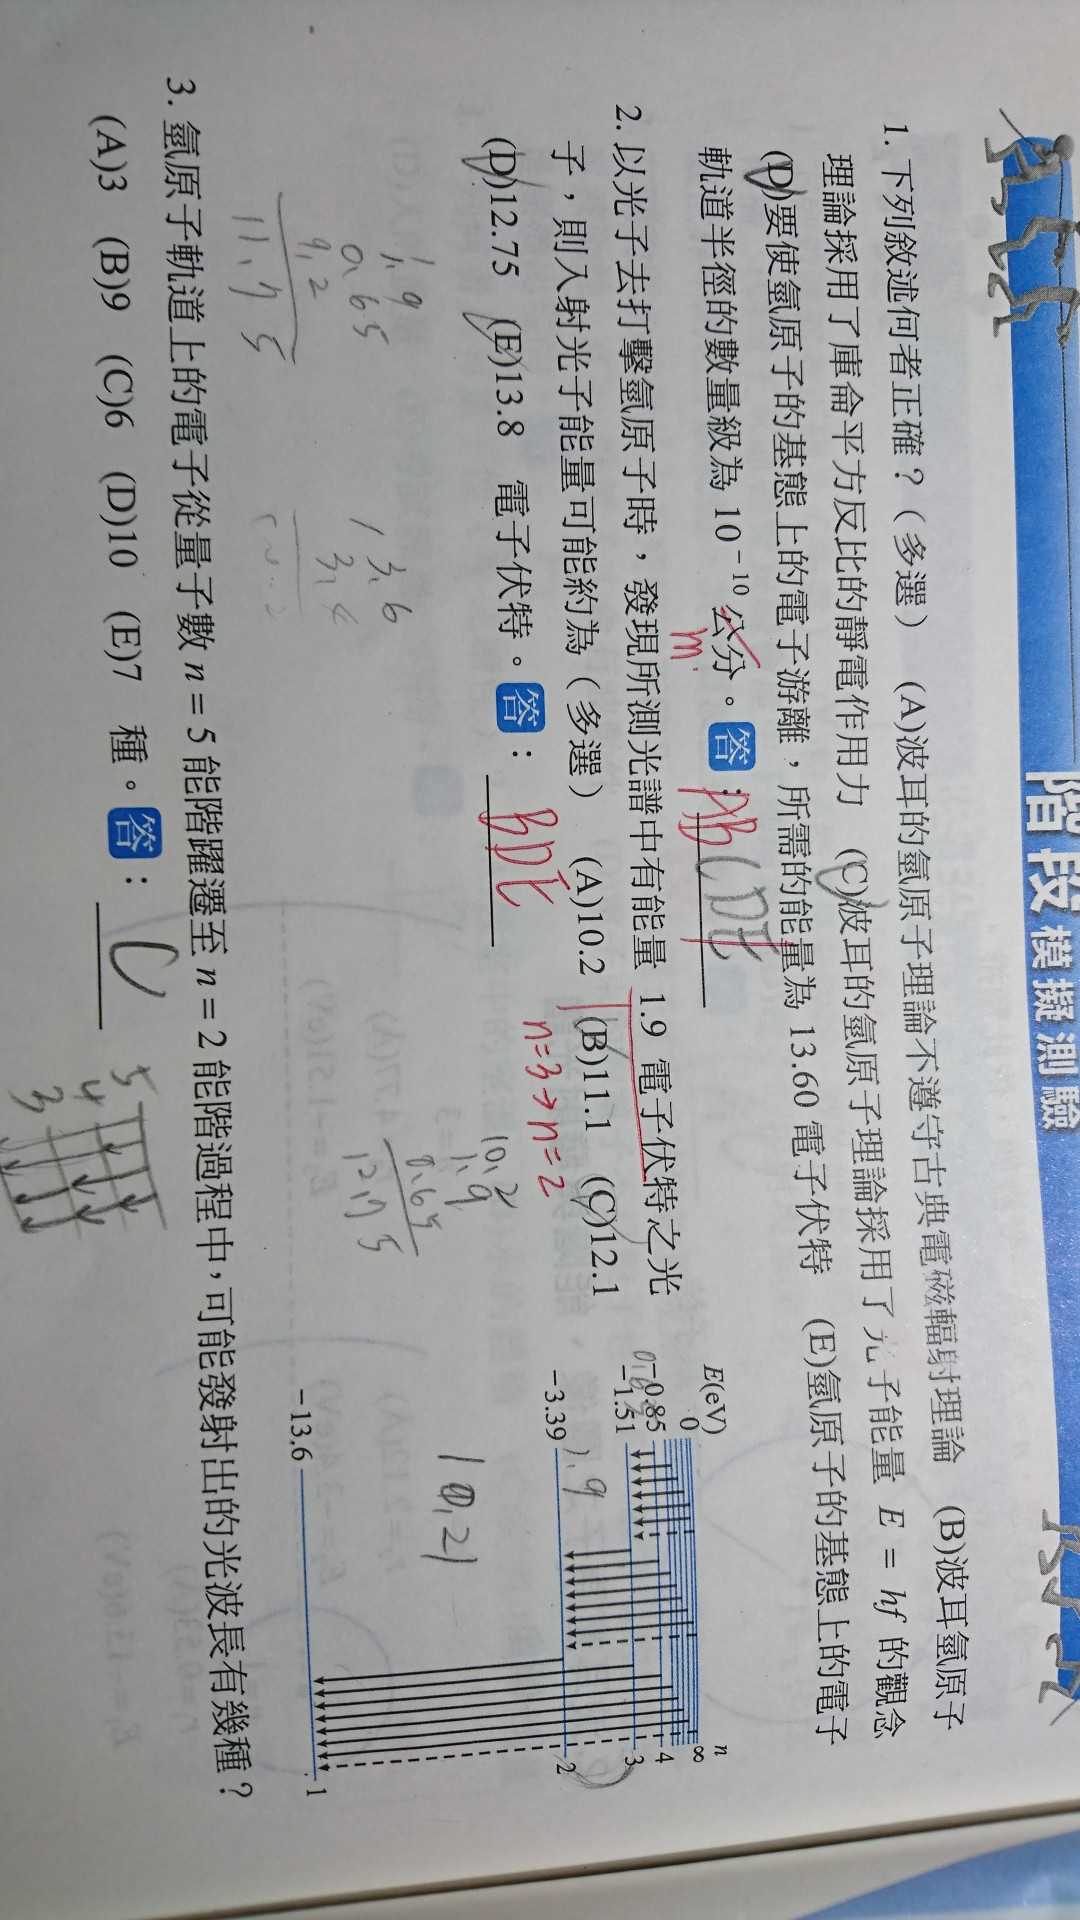 階段模擬測驗
1. 下列敘述何者正確？（多選） (A)波耳的氫原子理論不遵守古典電磁輻射理論 (B)波耳氫原子
理論採用了庫侖平方反比的靜電作用力 (C)波耳的氫原子理論採用了光子能量 E = hf 的觀念
(D)要使氫原子的基態上的電子游離，所需的能量為 13.60 電子伏特 (E)氫原子的基態上的電子
軌道半徑的數量級為 10⁻¹⁰ 公分。答：ABCDE
m
2. 以光子去打擊氫原子時，發現所測光譜中有能量 1.9 電子伏特之光
子，則入射光子能量可能約為（多選） (A)10.2 (B)11.1 (C)12.1
n=3→n=2
(D)12.75 (E)13.8 電子伏特。答：BDE
E(eV)
n
0
∞
-0.85
4
-1.51
3
-3.39
2
-13.6
1
1.9
10.21
10.2
1.9
0.65
12.75
1.9
0.65
9.2
11.75
13.6
3.4
3. 氫原子軌道上的電子從量子數 n = 5 能階躍遷至 n = 2 能階過程中，可能發射出的光波長有幾種？
(A)3 (B)9 (C)6 (D)10 (E)7 種。答：C
5
4
3